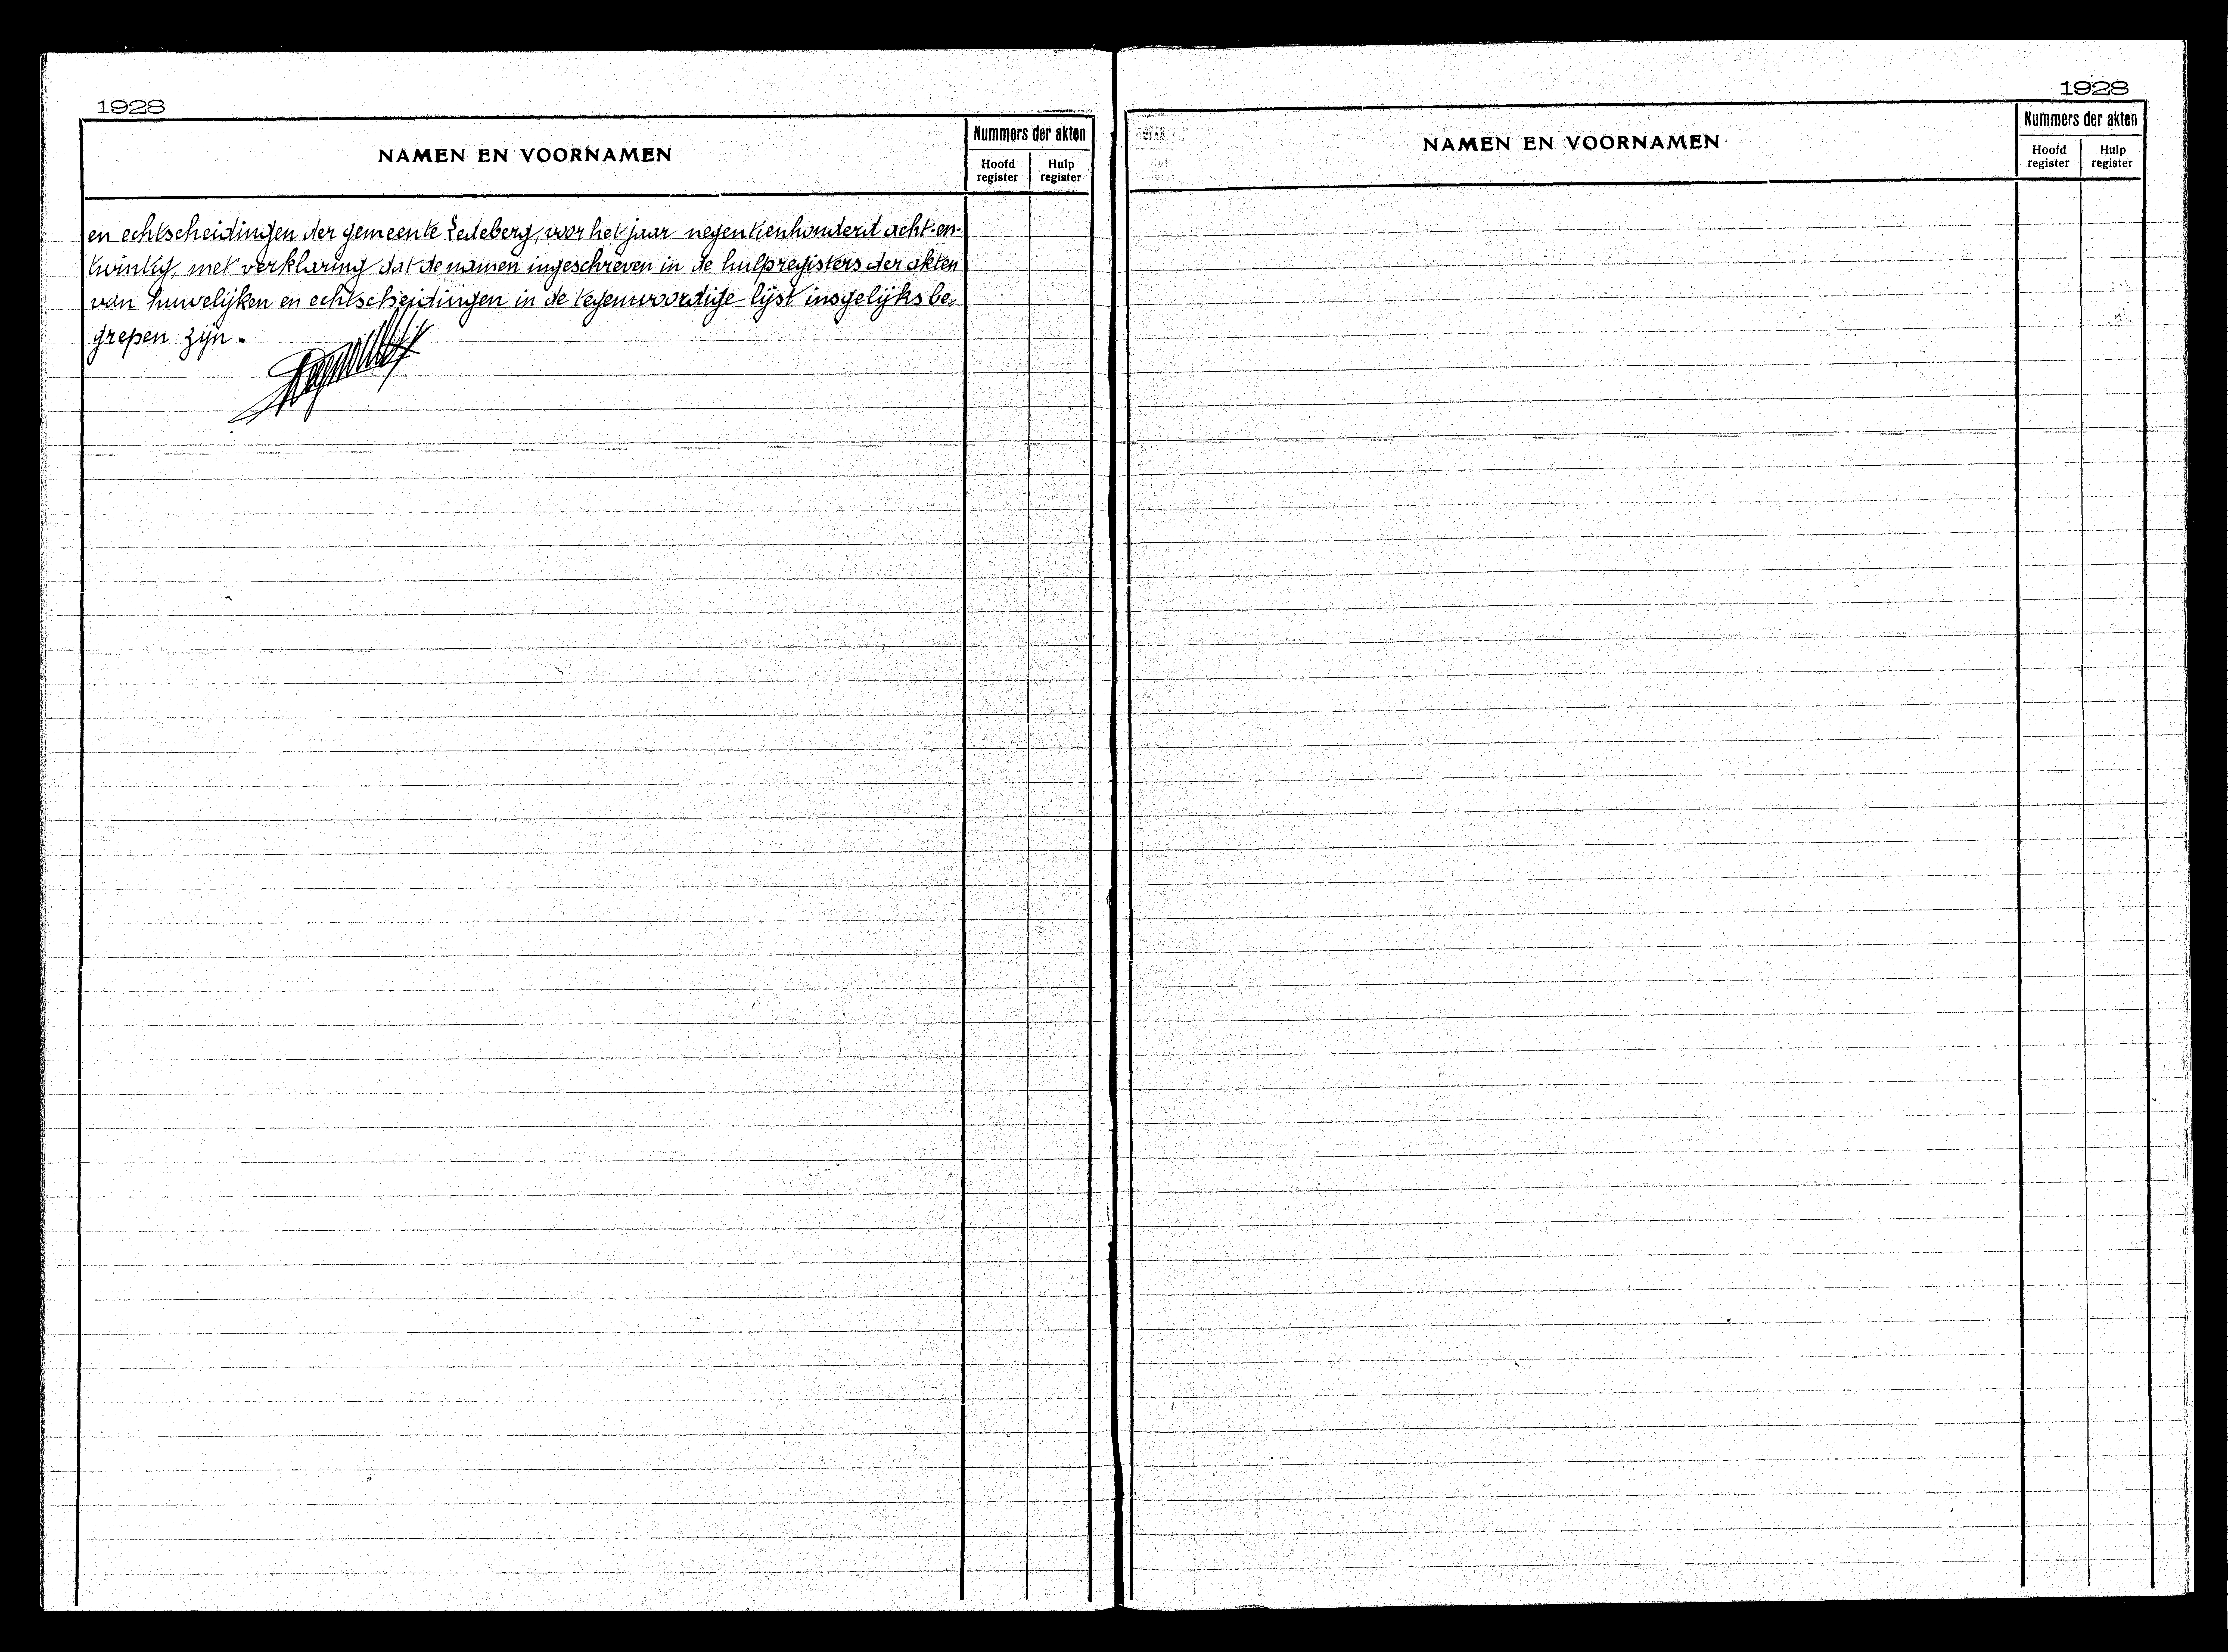 1928
NAMEN EN VOORNAMEN
Nummers der akten
Hoofd register
Hulp register
en echtscheidingen der gemeente Ledeberg, voor het jaar negentienhonderd acht-en-
twintig, met verklaring dat de namen ingeschreven in de hulpregisters der akten
van huwelijken en echtscheidingen in de tegenwoordige lijst insgelijks be-
grepen zijn.
1928
NAMEN EN VOORNAMEN
Nummers der akten
Hoofd register
Hulp register